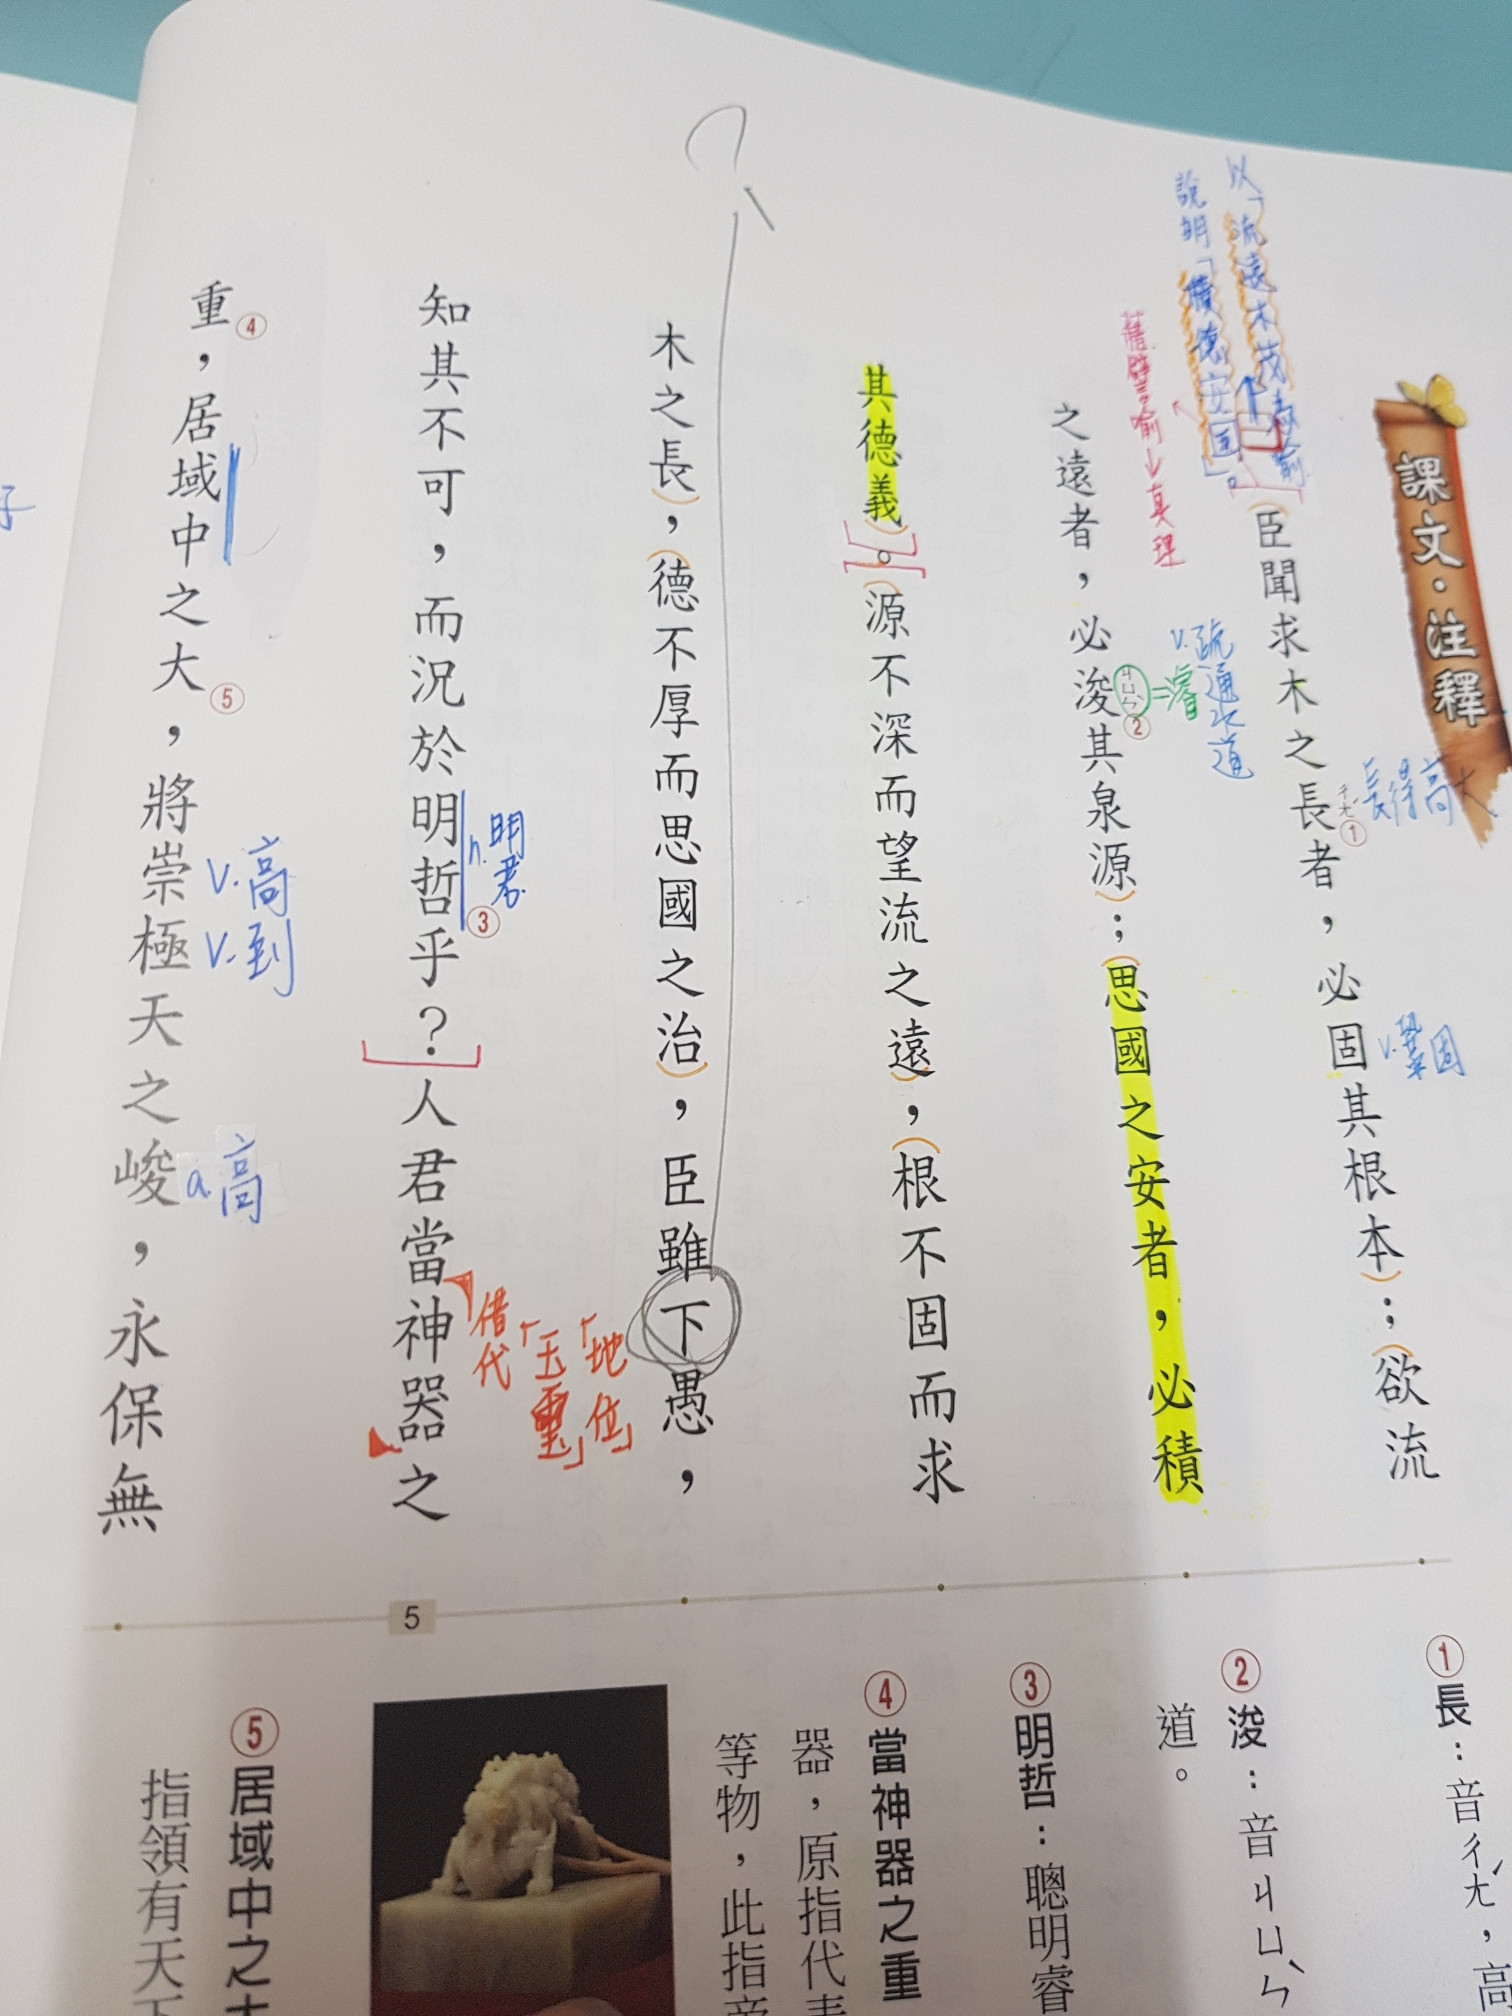 課文・注釋
臣聞求木之長①者，必固其根本；欲流
ㄔㄤˊ
長得高大
v.鞏固
以「流遠木茂為喻
說明「積德安國」。
之遠者，必浚②其泉源；思國之安者，必積
ㄐㄩㄣˋ
=濬
v.疏通水道
藉譬喻→真理
其德義。源不深而望流之遠，根不固而求
木之長，德不厚而思國之治，臣雖下愚，
?
知其不可，而況於明哲③乎？人君當神器之
n.明君
借代
「玉璽」
「地位」
重④，居域中之大⑤，將崇極天之峻，永保無
v.高
v.到
a.高
子
5
①長：音ㄔㄤˊ，高
②浚：音ㄐㄩㄣˋ
道。
③明哲：聰明睿
④當神器之重
器，原指代表
等物，此指帝
⑤居域中之大
指領有天下